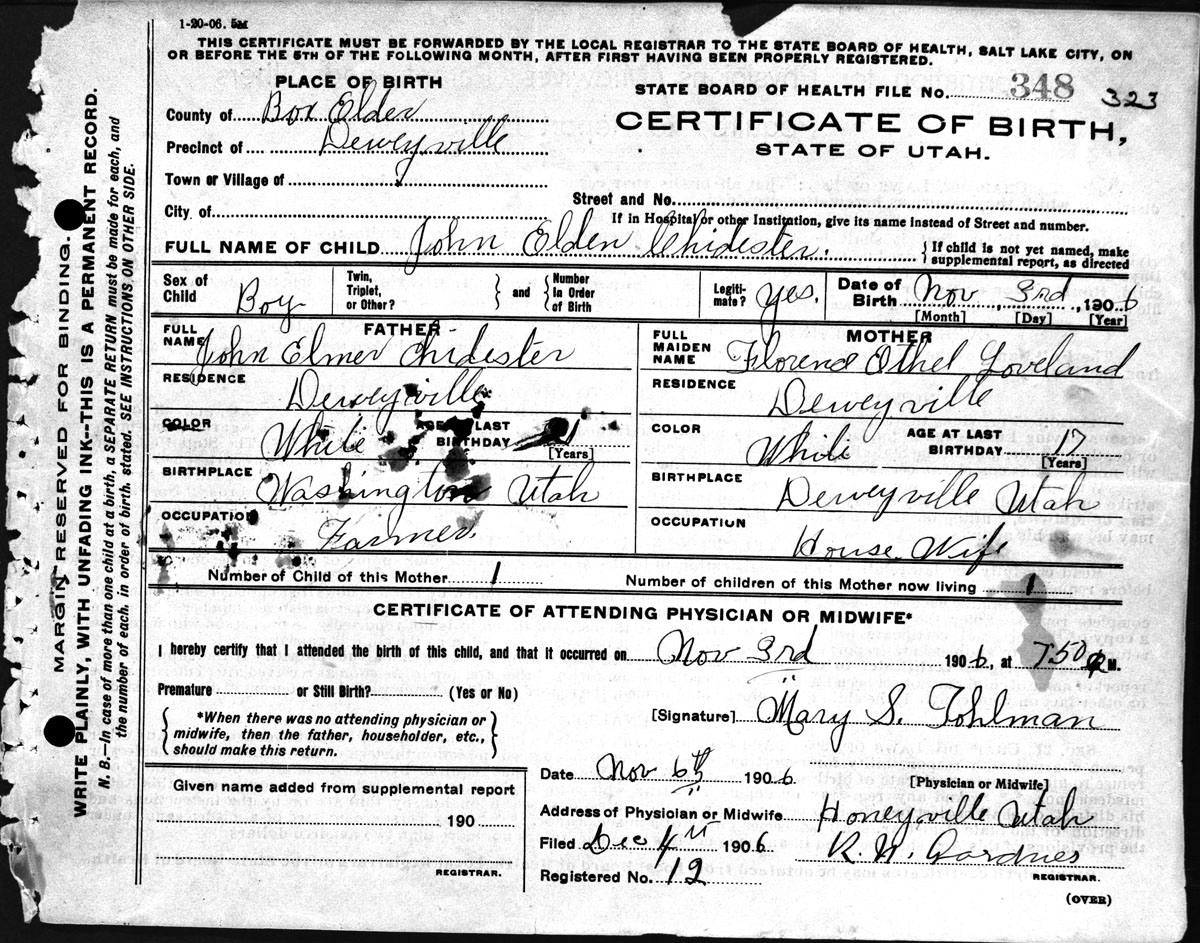 1-20-06. 5M
THIS CERTIFICATE MUST BE FORWARDED BY THE LOCAL REGISTRAR TO THE STATE BOARD OF HEALTH, SALT LAKE CITY, ON
OR BEFORE THE 5TH OF THE FOLLOWING MONTH, AFTER FIRST HAVING BEEN PROPERLY REGISTERED.
PLACE OF BIRTH
STATE BOARD OF HEALTH FILE No. 348 323
County of Box Elder
CERTIFICATE OF BIRTH,
Precinct of Deweyville
STATE OF UTAH.
Town or Village of
Street and No.
City of
If in Hospital or other Institution, give its name instead of Street and number.
FULL NAME OF CHILD John Elden Chidester. { If child is not yet named, make
supplemental report, as directed
Sex of Child Boy
Twin, Triplet, or Other? } and { Number In Order of Birth
Legiti-mate? Yes.
Date of Birth Nov 3rd, 1906
[Month] [Day] [Year]
FATHER
FULL NAME John Elmer Chidester
RESIDENCE Deweyville
COLOR White AGE AT LAST BIRTHDAY
[Years]
BIRTHPLACE Washington Utah
OCCUPATION Farmer.
MOTHER
FULL MAIDEN NAME Florend Ethel Loveland
RESIDENCE Deweyville
COLOR White AGE AT LAST BIRTHDAY 17
[Years]
BIRTHPLACE Deweyville Utah
OCCUPATION House Wife
Number of Child of this Mother 1 Number of children of this Mother now living 1
CERTIFICATE OF ATTENDING PHYSICIAN OR MIDWIFE*
I hereby certify that I attended the birth of this child, and that it occurred on Nov 3rd 1906, at 750 P M.
Premature or Still Birth? (Yes or No)
{ *When there was no attending physician or
midwife, then the father, householder, etc.,
should make this return. }
[Signature] Mary S. Tohlman
[Physician or Midwife]
Date Nov 6th 1906
Given name added from supplemental report
190
REGISTRAR.
Address of Physician or Midwife Honeyville Utah
Filed Dec 4th 1906 R. W. Gardner
REGISTRAR.
Registered No. 12
(OVER)
MARGIN RESERVED FOR BINDING.
WRITE PLAINLY, WITH UNFADING INK--THIS IS A PERMANENT RECORD.
N. B.--In case of more than one child at a birth, a SEPARATE RETURN must be made for each, and
the number of each, in order of birth, stated. SEE INSTRUCTIONS ON OTHER SIDE.